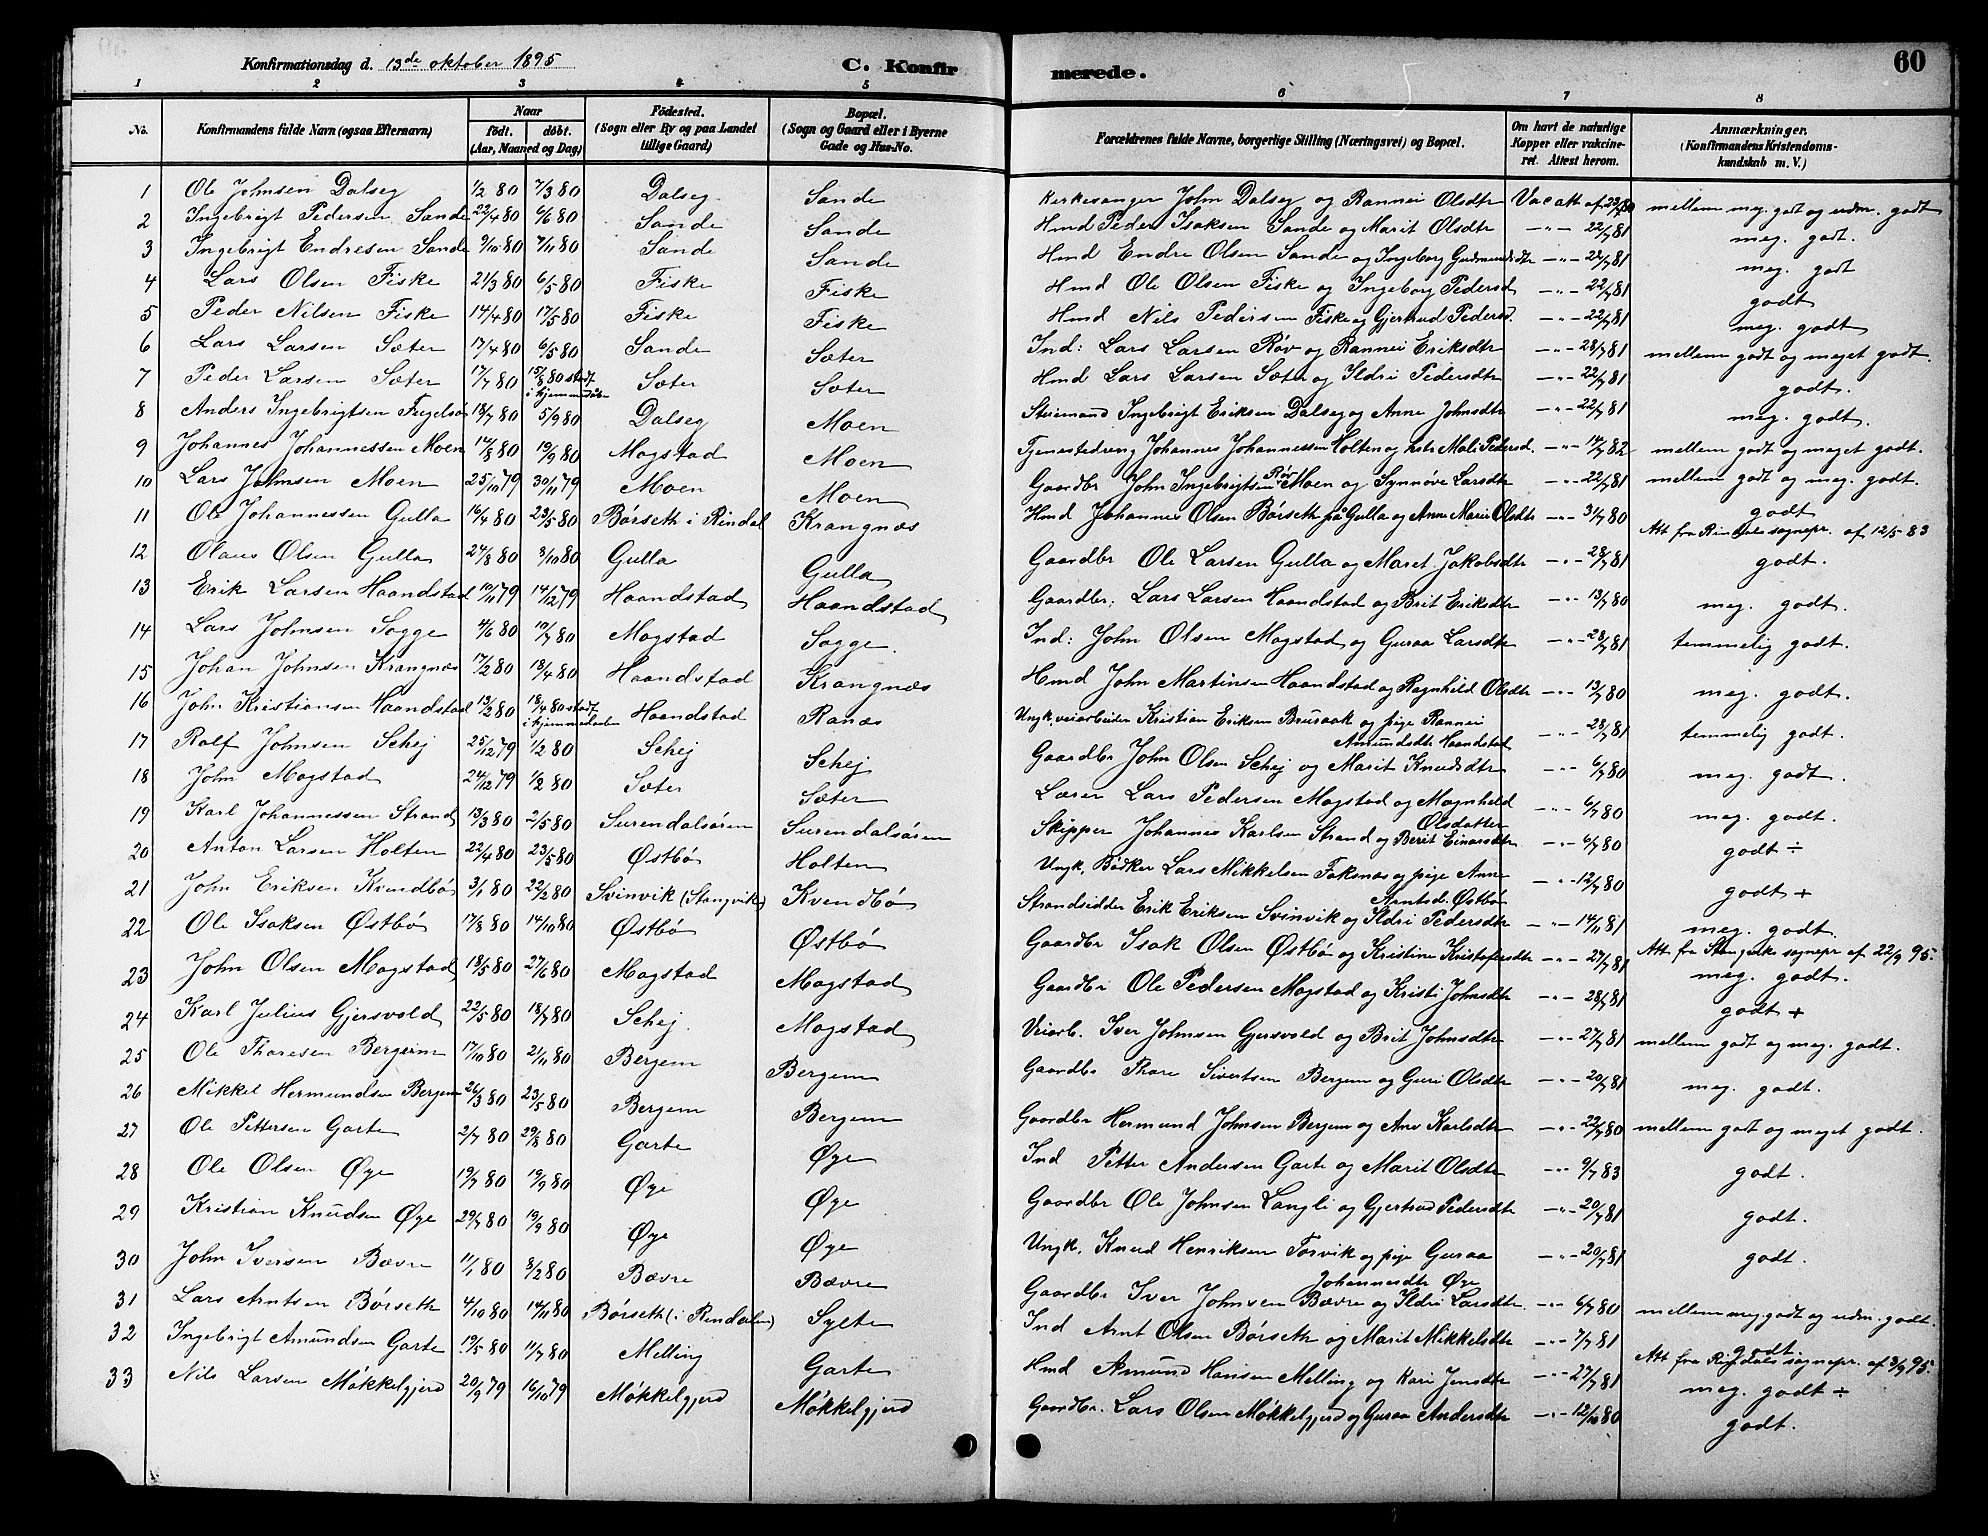 Konfirmationsdag d. 13de oktober 1895 C. Konfirmerede. 60
1 2 3 4 5 6 7 8
No. Konfirmandens fulde Navn (ogsaa Efternavn) Naar födt. döbt. (Aar, Maaned og Dag) Födested. (Sogn eller By og paa Landet tillige Gaard) Bopæl. (Sogn og Gaard eller i Byerne Gade og Hus-No. Forældrenes fulde Navne, borgerlige Stilling (Næringsvei) og Bopæl. Om havt de naturlige Kopper eller vakcineret. Attest herom. Anmærkninger. (Konfirmandens Kristendomskundskab m. V.)
1 Ole Johnsen Dalseg 1/2 80 7/3 80 Dalseg Sande Kirkesanger John Dalseg og Rannei Olsdtr Vac att af 23/7 80 mellem meg. godt og udm. godt
2 Ingebrigt Pedersen Sande 22/4 80 6/6 80 Sande Sande Hmd Peder Isaksen Sande og Marit Olsdtr —"— 22/7 81 meg. godt.
3 Ingebrigt Endresen Sande 9/10 80 7/11 80 Sande Sande Hmd Endre Olsen Sande og Ingeborg Gudmundsdtr —"— 22/7 81 meg. godt
4 Lars Olsen Fiske 21/3 80 6/5 80 Fiske Fiske Hmd Ole Olsen Fiske og Ingeborg Pedersd —"— 22/7 81 godt
5 Peder Nilsen Fiske 14/4 80 17/5 80 Fiske Fiske Hmd Nils Pedersen Fiske og Gjertrud Pedersd. —"— 22/7 81 meg. godt
6 Lars Larsen Sæter 17/4 80 6/5 80 Sande Sæter Ind: Lars Larsen Røv og Rannei Eriksdtr —"— 28/7 81 mellem godt og meget godt.
7 Peder Larsen Sæter 17/7 80 15/8 80 stadf. i hjemmedåb Sæter Sæter Hmd Lars Larsen Sæter og Ildri Pedersdtr —"— 22/7 81 godt.
8 Anders Ingebrigtsen 18/7 80 5/9 80 Dalseg Moen Ingebrigt Eriksen Dalseg og Anne Johnsdtr —"— 22/7 81 meg. godt.
9 Johannes Johannessen Moen 14/8 80 19/9 80 Mogstad Moen Tjenestedreng Johannes Johannessen Holten og Mali Pedersd. —"— 14/7 82 mellem godt og meget godt.
10 Lars Johnsen Moen 25/10 79 30/11 79 Moen Moen Gaardbr John Ingebrigtsen Røv Moen og Synnøve Larsdtr —"— 22/7 81 mellem godt og meg. godt.
11 Ole Johannessen Gulla 16/4 80 23/5 80 Børseth i Rindal Krangnæs Hmd Johannes Olsen Børseth på Gulla og Anne Marie Olsdtr —"— 31/7 80 godt
Att fra Rindals sognepr. af 12/5 83
12 Olaus Olsen Gulla 24/8 80 3/10 80 Gulla Gulla Gaardbr Ole Larsen Gulla og Maret Jakobsdtr —"— 28/7 81 godt.
13 Erik Larsen Haandstad 10/11 79 14/12 79 Haandstad Haandstad Gaardbr. Lars Larsen Haandstad og Brit Eriksdtr —"— 13/7 80 meg. godt.
14 Lars Johnsen Sogge 4/6 80 19/7 80 Mogstad Sogge. Ind: John Olsen Mogstad og Guraa Larsdtr —"— 28/7 81 temmelig godt.
15 Johan Johnsen Krangnæs 17/2 80 18/4 80 Haandstad Krangnæs Hmd John Martinsen Haandstad og Ragnhild Olsdtr —"— 13/7 80 meg. godt.
16 John Kristiansen Haandstad 13/2 80 18/4 80 stadf. i hjemmedåb Haandstad Ranæs Ungk. veiarbeider Kristian Eriksen Brusaak og pige Rannei Amundsdtr Haandstad —"— 28/7 81 temmelig godt.
17 Rolf Johnsen Schej 25/12 79 1/2 80 Schej Schej Gaardbr John Olsen Schej og Marit Knudsdtr —"— 6/7 80 meg. godt.
18 John Mogstad 24/12 79 1/2 80 Sæter Sæter Lærer Lars Pedersen Mogstad og Magnhild Olsdatter —"— 6/7 80 meg. godt.
19 Karl Johannessen Strand 13/3 80 2/5 80 Surendalsøren Surendalsøren Skipper Johannes Karlsen Strand og Berit Einarsdtr —"— 6/7 80 godt ÷
20 Anton Larsen Holten 22/4 80 23/5 80 Østbø Holten Ungk. Bødker Lars Mikkelsen Foksnæs og pige Anne Arntsd. Østbø —"— 12/7 80 godt +
21 John Eriksen Kvendbø 3/1 80 22/2 80 Svinvik (Stangvik) Kvendbø Strandsidder Erik Eriksen Svinvik og Ildri Pedersdtr —"— 14/11 81 meg. godt.
Att fra Stangviks sognepr af 22/9 95.
22 Ole Isaksen Østbø 17/8 80 14/10 80 Østbø Østbø Gaardbr Isak Olsen Østbø og Kristine Kristofersdtr —"— 27/7 81 meg. godt.
23 John Olsen Mogstad 18/5 80 27/6 80 Mogstad Mogstad Gaardbr Ole Pedersen Mogstad og Kristi Johnsdtr —"— 28/7 81 godt +
24 Karl Julius Gjersvold 22/5 80 18/7 80 Schej. Mogstad Veiarb. Iver Johnsen Gjersvold og Brit Johnsdtr —"— 27/7 81 mellem godt og meg. godt.
25 Ole Tharesen Bergem 17/10 80 2/11 80 Bergem Bergem Gaardbr Thare Sivertsen Bergem og Guri Olsdtr —"— 20/7 81 meg. godt.
26 Mikkel Hermundsen Bergem 26/3 80 23/5 80 Bergem Bergem Gaardbr Hermund Johnsen Bergem og Ane Karlsdtr —"— 22/7 80 mellem godt og meget godt.
27 Ole Pettersen Garte 2/7 80 29/8 80 Garte Øye Ind Petter Andersen Garte og Marit Olsdtr —"— 9/7 83 godt.
28 Ole Olsen Øye 19/7 80 19/9 80 Øye Øye Gaardbr Ole Johnsen Langli og Gjertrud Pedersdtr —"— 20/7 81 godt.
29 Kristian Knudsen Øye 29/7 80 19/9 80 Øye Øye Ungk. Knud Henriksen Torvik og pige Guraa Johannesdtr Øye —"— 20/7 81 godt.
30 John Iversen Bævre 11/1 80 8/2 80 Bævre Bævre Gaardbr Iver Johnsen Bævre og Ildri Larsdtr. —"— 6/7 80 mellem meg godt og udm. godt.
31 Lars Arntsen Børseth 4/10 80 14/11 80 Børseth (i Rindalen) Sylte Ind Arnt Olsen Børseth og Marit Mikkelsdtr —"— 7/7 81 godt.
Att fra Rindals sognepr. af 3/9 95.
32 Ingebrigt Amundsen Garte 19/5 80 11/7 80 Melling Garte Hmd Amund Hansen Melling og Kari Jensdtr —"— 27/7 81 meg. godt ÷
33 Nils Larsen Møkkelgjerd 20/9 79 16/10 79 Møkkelgjerd Møkkelgjerd Gaardbr. Lars Olsen Møkkelgjerd og Guraa Andersdtr —"— 12/10 80 godt.